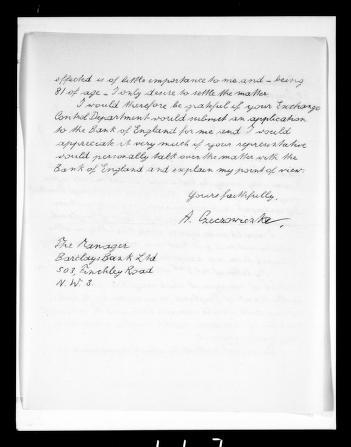 effected is of little importance to me and – being
81 of age – I only desire to settle the matter.
I would therefore be grateful if your Exchange
Control Department would submit an application
to the Bank of England for me and I would
appreciate it very much if your representative
would personally talk over the matter with the
Bank of England and explain my point of view.
Yours faithfully,
A.
The Manager
Barclays Bank Ltd
503, Finchley Road
N. W. 3.